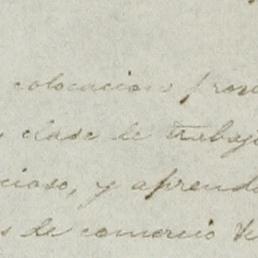 colocacion
clase de trabaj
cioso, y aprend
s de comercio